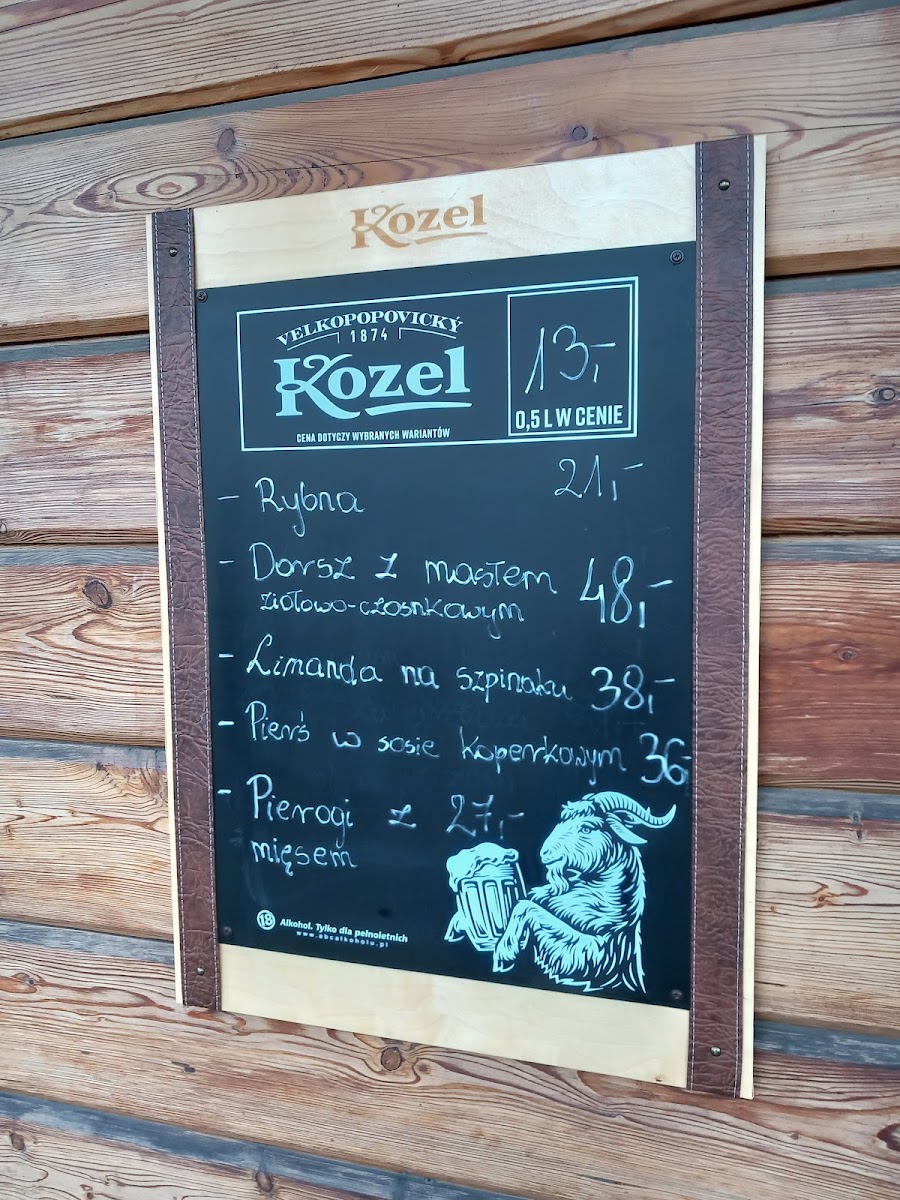 Kozel
VELKOPOPOVICKÝ
1874
Kozel
CENA DOTYCZY WYBRANYCH WARIANTÓW
13,-
0,5 L W CENIE
- Rybna 21,-
- Dorsz z masłem 48,-
ziołowo-czosnkowym
- Limanda na szpinaku 38,-
- Pierś w sosie koperkowym 36,-
- Pierogi z 27,-
mięsem
18 Alkohol. Tylko dla pełnoletnich
www.abcalkoholu.pl